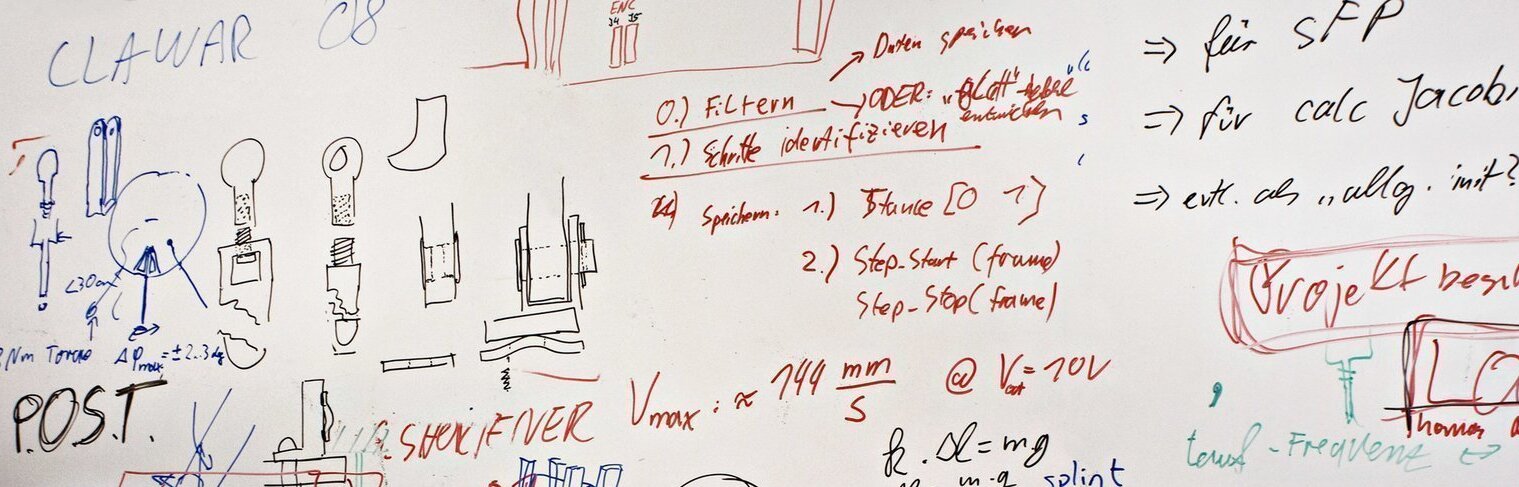 CLAWAR 08
ENC
J4 J5
Daten speichern
0.) Filtern
ODER: "glatt"
entwickeln
1.) Schritte identifizieren
Speichern: 1.) Stance [0 1]
2.) Step-Start (frame)
Step-Stop (frame)
⇒ für SFP
⇒ für calc Jacobi
⇒ evtl. als "allg. mit?
Projekt
<30
Nm Torque Δφmax = ± 2..3 deg
P.O.S.T.
Vmax: ≈ 144 mm/s @ Vout = 10V
k . Δl = mg
m.g splint
Thomas
Frequenz ↔